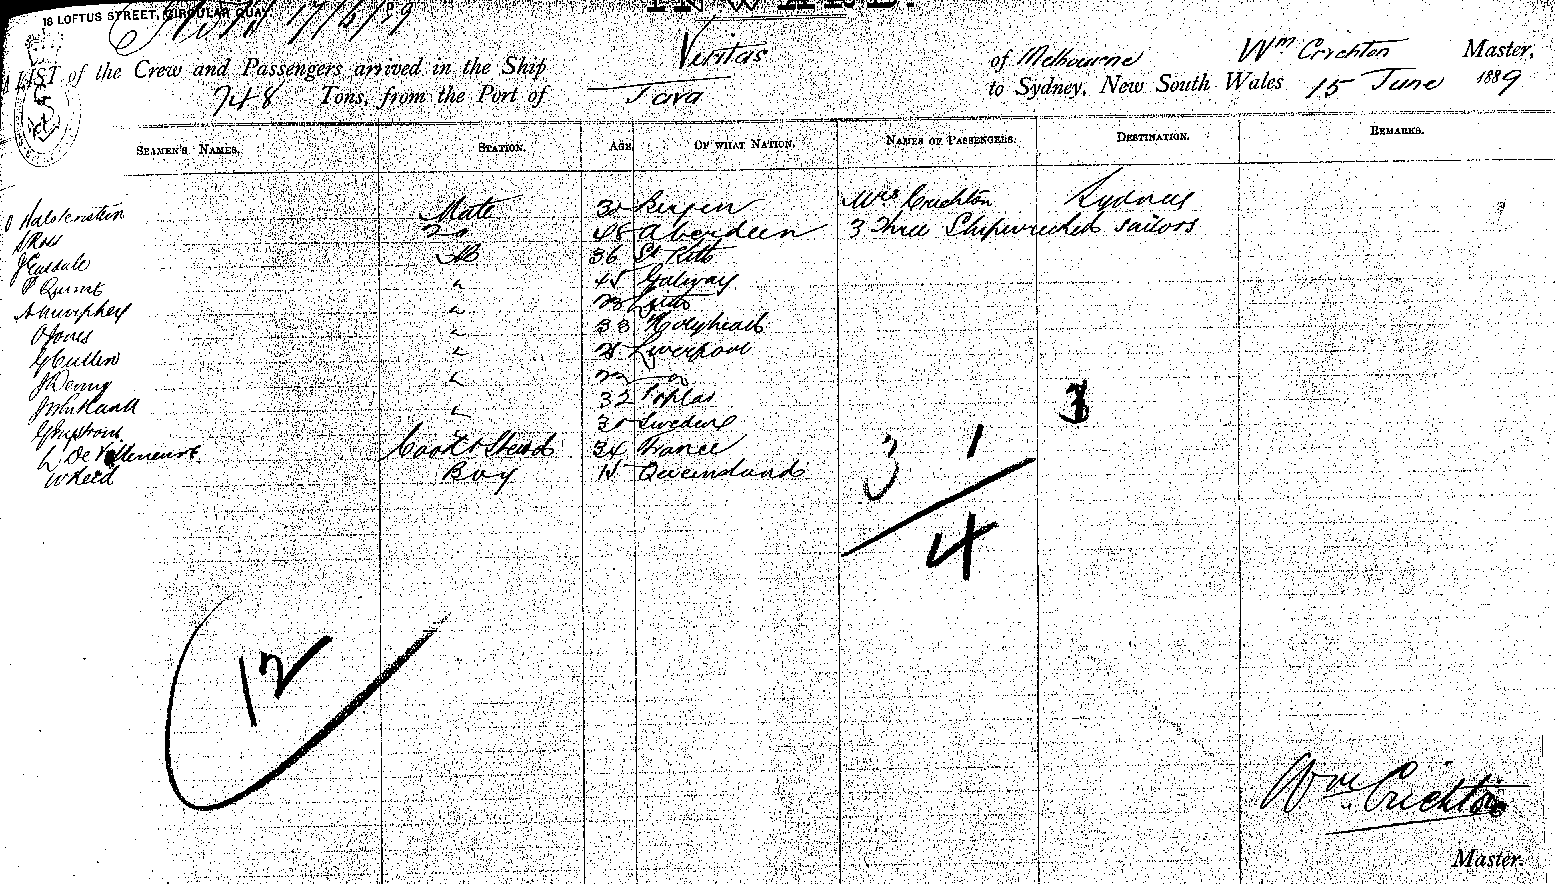 18 LOFTUS STREET, CIRCULAR QUAY. 17/6/89
INWARD.
A LIST of the Crew and Passengers arrived in the Ship Veritas of Melbourne Wm Crichton Master,
748 Tons, from the Port of Java to Sydney, New South Wales 15 June 1889
SEAMEN'S NAMES. STATION. AGE. OF WHAT NATION. NAMES OF PASSENGERS. DESTINATION. REMARKS.
Mate 30 Bergen Mrs Crichton Sydney
Ross Do 48 Aberdeen 3 Three Shipwrecked sailors
AB 36 St Kitts
45 Galway
A Humphey " 23 Leith
O Jones " 33 Holyhead
G Cullen " 28 Liverpool
J Denny "
" 32 Poplar
30 Sweden
Cook & Steward 34 France
W Reed Boy 15 Queensland
3
3 1
4
12
Wm Crichton
Master.